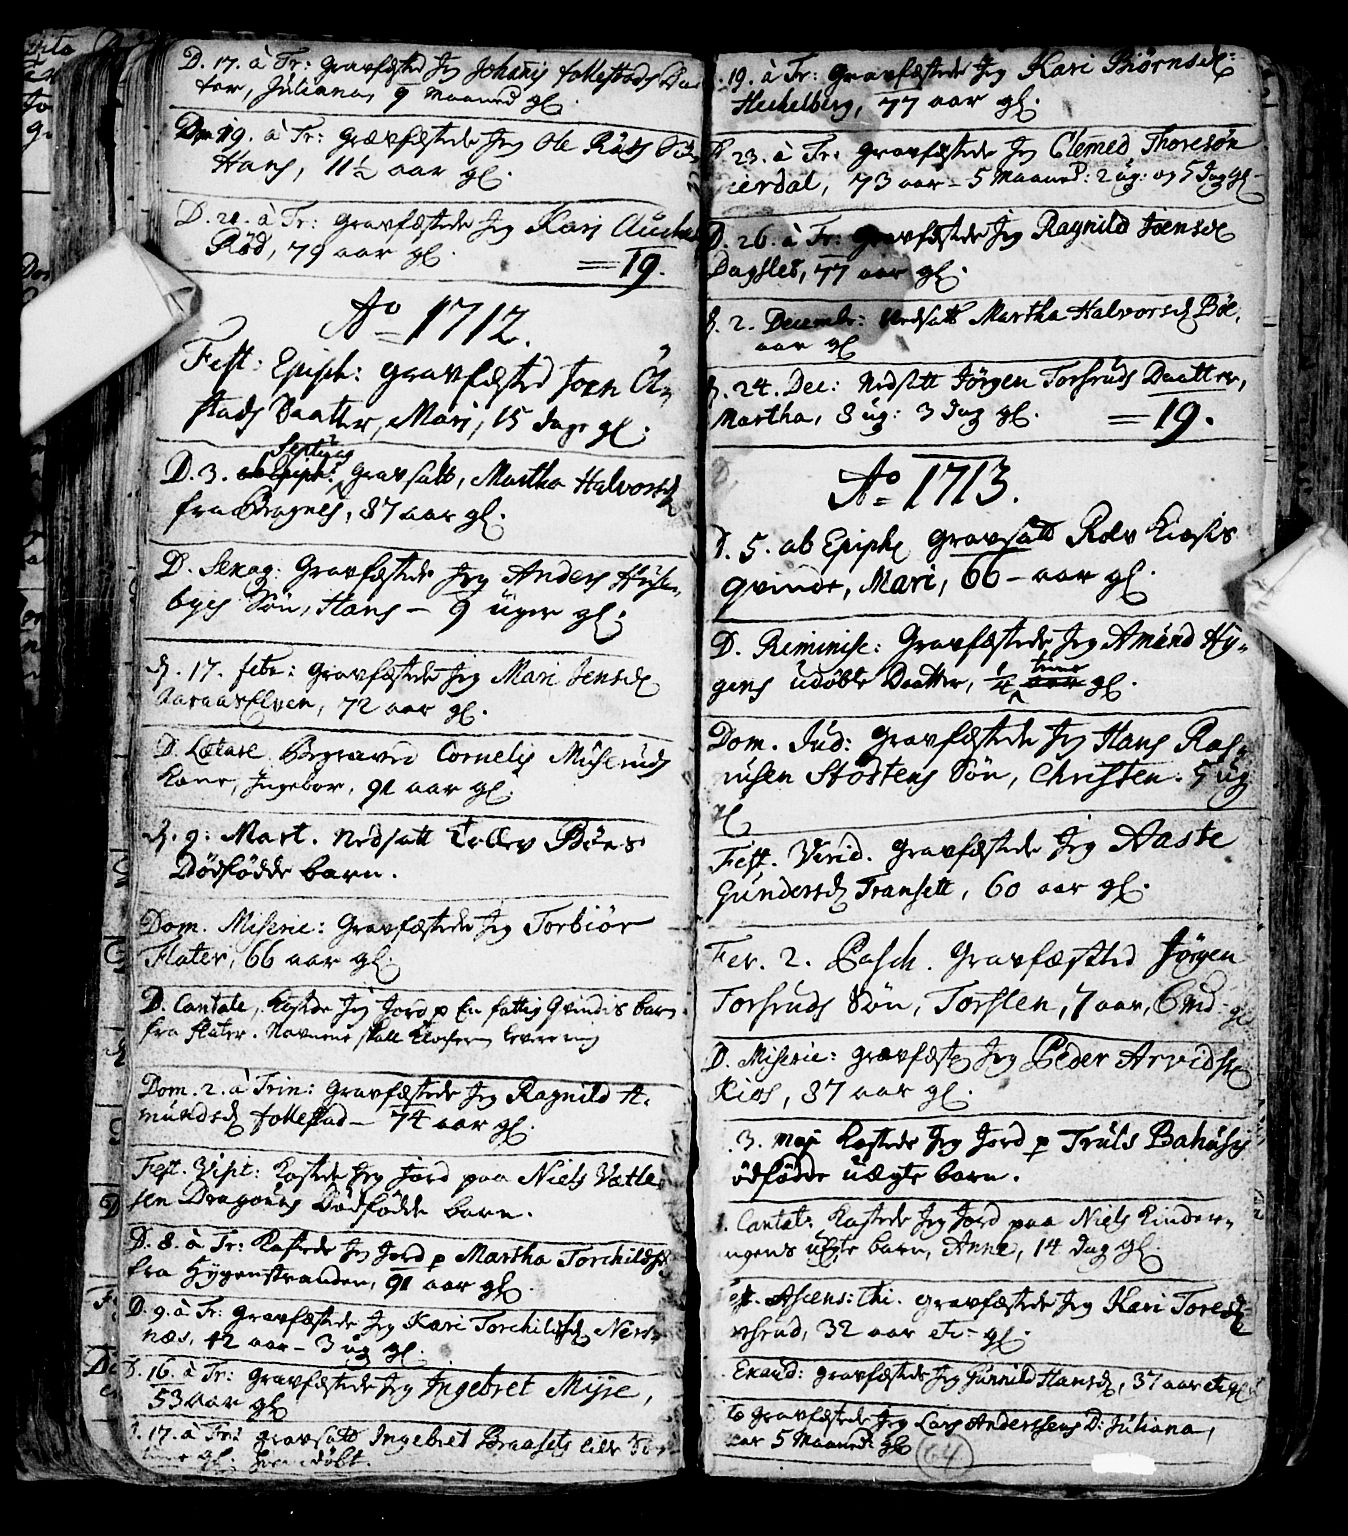 D. 17. à Tr: gravfæsted Jeg Johanis follestads Daa
ter, Juliana, 9 Maaned gl.
Dom 19. à Tr: Grævfæstede Jeg Ole Röds Sön
Hans, 11½ aar gl.
D. 21. à Tr: gravfæstede Jeg Kari
Röd, 79 aar gl.
= 19.
Ao 1712.
Fest: Epiph: gravfæsted Joen Öl-
stads Daatter, Mari, 15 dage gl.
Septuag
D. 3. ab Epiph: Gravsatt, Martha Halvorsd
fra Bragnes, 87 aar gl.
D. Sexag: Gravfæstede Jeg Anders Huse-
byes Sön, Hans - 9 uger gl.
d. 17. febr: Gravfæstede Jeg Mari Jensd
AaraasElven, 72 aar gl.
D. Lætare Begraved Cornelis Miseruds
kone, Ingebor, 91 aar gl.
d. 9. Mart. nedsatt Tollev Böes
Dödfödde barn.
Dom. Miseric: Gravfæstede Jeg Torbiör
Slater, 66 aar gl.
D. Cantate, kastede Jeg Jord p En fattig Qvindes barn
fra slater. Navnene skall Klocheren levere mig
Dom. 2. à Trin: gravfæstede Jeg Ragnild A-
mundsd follestad - 74 aar gl.
Fest. Visit: kastede Jeg Jord paa Niels Vætle-
sen Dragouns Dödfödde barn.
D. 8. à Tr: kastede Jeg Jord p Martha Torchildsd
fra Hygenstranden, 91 aar gl.
D. 9. à Tr: Gravfæstede Jeg Kari Torchildsd Ners-
næs, 42 aar - 3 ug gl.
D. 16. à Tr: Gravfæstede Jeg Ingebret Myre,
53 aar gl.
D. 17. à Tr: gravsatte Ingebret Braasets lille
time gl. hiemdöbt.
19. à Tr: Gravfæstede Jeg Kari Biörnsd:
Heckelberg, 77 aar gl.
D 23. à Tr: gravfæstede Jeg Clemed Thoresön
ierdal, 73 aar - 5 Maaned: 2 ug: og 5 Dag gl -
D. 26. à Tr: Gravfæstede Jeg Ragnild Joensd
Dagsled, 77 aar gl.
d. 2. Decembr: Nedsatt Martha Halvorsd Böe,
aar gl
d. 24. Dec: Nedsatt Jörgen Torsruds Daatter,
Martha, 8 ug: 3 dag gl.
= 19.
Ao 1713.
D. 5. ab Epiph gravsatt Rolv Kiøs's
qvinde, Mari, 66 - aar gl.
D. Reminisc: Gravfæstede Jeg Amund Hy-
gens udöbte Daatter, ¼ time aar gl.
Dom. Jud: gravfæstede Jeg Hans Ras-
musen Stöstens Sön, Christen. 5 ug
gl
Fest. Virid. gravfæstede Jeg Aaste
Gundersd Transett, 60 aar gl.
Fer. 2. Pasch. Gravfæsted Jörgen
Torsruds Sön, Torsten, 7 aar, 6 md. gl
D. Miseric: gravfæste Jeg Peder Arvidsen
Kios, 37 aar gl.
3. maji kastede Jeg Jord p Truls Bahusis
ödfödde uægte barn.
. Cantat: Kastede Jeg Jord paa Niels Kinder-
ngens uEgte barn, Anne, 14 dag gl
est. Ascens: Chi. gravfæstede Jeg Kari Toresd
orsrud, 32 aar etc - gl.
Exaud: gravfæstede Jeg Gunnild Hansd, 37 aar etc gl
to gravfæstede Jeg Lars Anderssens D: Juliana,
aar 5 Maaned: gl
64